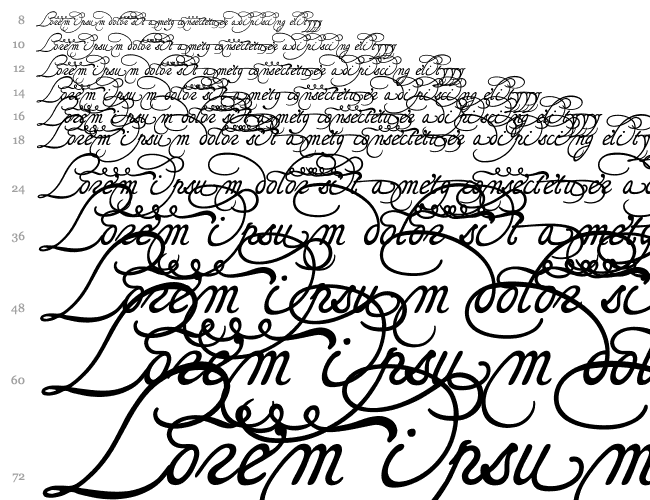 8 Lorem ipsum dolor sit amety consectetuere adipiscing elityyy
10 Lorem ipsum dolor sit amety consectetuere adipiscing elityyy
12 Lorem ipsum dolor sit amety consectetuere adipiscing elityyy
14 Lorem ipsum dolor sit amety consectetuere adipiscing elityyy
16 Lorem ipsum dolor sit amety consectetuere adipiscing elityyy
18 Lorem ipsum dolor sit amety consectetuere adipiscing elity
24 Lorem ipsum dolor sit amety consectetuere a
36 Lorem ipsum dolor sit amety
48 Lorem ipsum dolor si
60 Lorem ipsum dol
72 Lorem ipsum